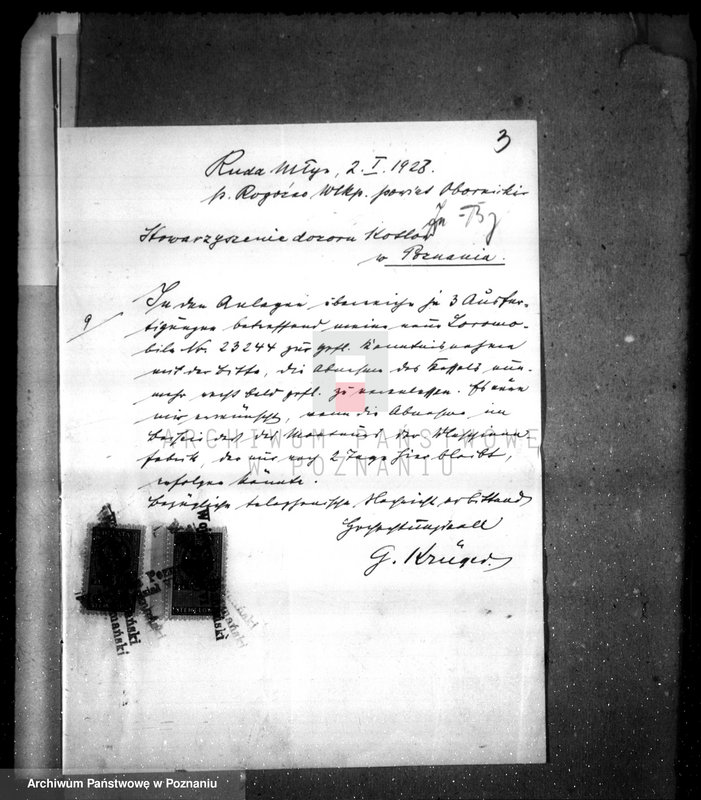 3
Ruda Młyn, 2. I. 1928.
p. Rogoźno Wlkp. powiat Obornicki
Stowarzyszenie dozoru Kotłów
w Poznaniu.
9
In den Anlagen überreiche je 3 Ausfer-
tigungen betreffend meine neue Locomo-
bile Nr. 23244 zur gefl. Kenntnisnahme
mit der Bitte, die Abnahme des Kessels nun-
mehr recht bald gefl. zu veranlassen. Es wäre
mir erwünscht, wenn die Abnahme im
Beisein des Monteurs der Maschinen
fabrik, der nur noch 2 Tage hier bleibt,
erfolgen könnte.
Bezügliche telephonische Nachricht erbittend
Hochachtungsvoll
G. Krüger.
STEMPLOWA
ARCHIWUM PAŃSTWOWE
W POZNANIU
Archiwum Państwowe w Poznaniu